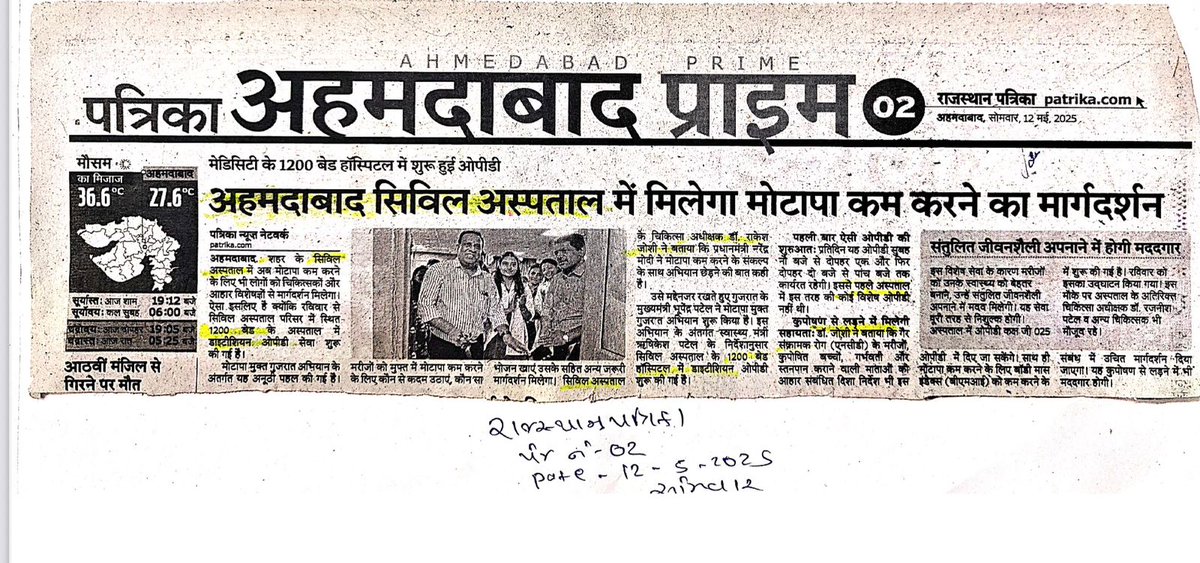 AHMEDABAD PRIME
पत्रिका अहमदाबाद प्राइम 02
राजस्थान पत्रिका patrika.com
अहमदाबाद, सोमवार, 12 मई, 2025
मौसम
का मिजाज अहमदाबाद
36.6°C 27.6°C
सूर्यास्त: आज शाम 19:12 बजे
सूर्योदय: कल सुबह 06:00 बजे
19:05 बजे
05:25 बजे
आठवीं मंजिल से
गिरने पर मौत
मेडिसिटी के 1200 बेड हॉस्पिटल में शुरू हुई ओपीडी
अहमदाबाद सिविल अस्पताल में मिलेगा मोटापा कम करने का मार्गदर्शन
पत्रिका न्यूज नेटवर्क
patrika.com
अहमदाबाद. शहर के सिविल
अस्पताल में अब मोटापा कम करने
के लिए भी लोगों को चिकित्सकों और
आहार विशेषज्ञों से मार्गदर्शन मिलेगा।
ऐसा इसलिए है क्योंकि रविवार से
सिविल अस्पताल परिसर में स्थित
1200 बेड के अस्पताल में
डाइटीशियन ओपीडी सेवा शुरू
की गई है।
मोटापा मुक्त गुजरात अभियान के
अंतर्गत यह अनूठी पहल की गई है।
मरीजों को मुफ्त में मोटापा कम करने
के लिए कौन से कदम उठाएं, कौन सा
भोजन खाएं उसके सहित अन्य जरूरी
मार्गदर्शन मिलेगा। सिविल अस्पताल
के चिकित्सा अधीक्षक डॉ. राकेश
जोशी ने बताया कि प्रधानमंत्री नरेंद्र
मोदी ने मोटापा कम करने के संकल्प
के साथ अभियान छेड़ने की बात कही
है।
उसे मद्देनजर रखते हुए गुजरात के
मुख्यमंत्री भूपेंद्र पटेल ने मोटापा मुक्त
गुजरात अभियान शुरू किया है। इस
अभियान के अंतर्गत स्वास्थ्य मंत्री
ऋषिकेश पटेल के निर्देशानुसार
सिविल अस्पताल के 1200 बेड
हॉस्पिटल में डाइटीशियन ओपीडी
शुरू की गई है।
पहली बार ऐसी ओपीडी की
शुरुआत: प्रतिदिन यह ओपीडी सुबह
नौ बजे से दोपहर एक और फिर
दोपहर दो बजे से पांच बजे तक
कार्यरत रहेगी। इससे पहले अस्पताल
में इस तरह की कोई विशेष ओपीडी
नहीं थी।
कुपोषण से लड़ने में मिलेगी
सहायता: डॉ. जोशी ने बताया कि गैर
संक्रामक रोग (एनसीडी) के मरीजों,
कुपोषित बच्चों, गर्भवती और
स्तनपान कराने वाली माताओं को
आहार संबंधित दिशा निर्देश भी इस
ओपीडी में दिए जा सकेंगे। साथ ही
मोटापा कम करने के लिए बॉडी मास
इंडेक्स (बीएमआई) को कम करने के
संबंध में उचित मार्गदर्शन दिया
जाएगा। यह कुपोषण से लड़ने में भी
मददगार होगी।
संतुलित जीवनशैली अपनाने में होगी मददगार
इस विशेष सेवा के कारण मरीजों
को उनके स्वास्थ्य को बेहतर
बनाने, उन्हें संतुलित जीवनशैली
अपनाने में मदद मिलेगी। यह सेवा
पूरी तरह से निशुल्क होगी।
अस्पताल में ओपीडी कक्ष जी 025
में शुरू की गई है। रविवार को
इसका उद्घाटन किया गया। इस
मौके पर अस्पताल के अतिरिक्त
चिकित्सा अधीक्षक डॉ. रजनीश
पटेल व अन्य चिकित्सक भी
मौजूद रहे।
રાજસ્થાન પત્રિકા
પેજ નં - 02
Date - 12 - 5 - 2025